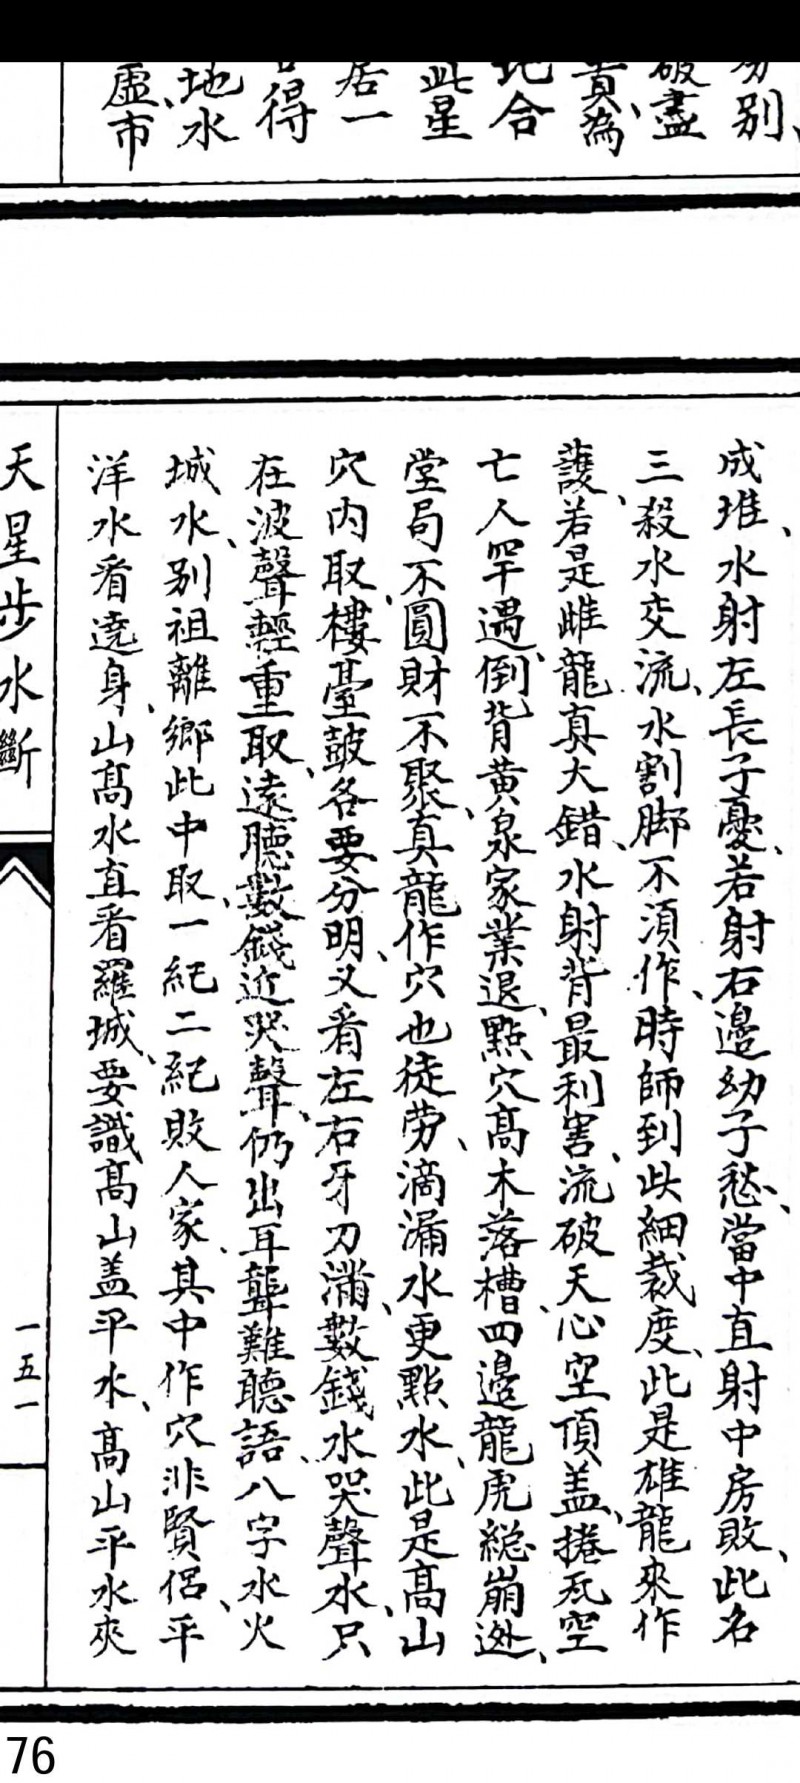 別
破盡
貴為
地合
此星
居一
得
地水
虛市
成堆、水射左長子憂、若射右邊幼子愁、當中直射中房敗、此名
三殺水交流、水割脚不須作、時師到此細裁度、此是雄龍來作
護、若是雌龍真大錯、水射背最利害、流破天心空頂盖、捲瓦空
亡人罕遇、倒背黄泉家業退、點穴高木落槽、四邊龍虎総崩逊、
堂局不圓財不聚、真龍作穴也徒劳、滴漏水更點水、此是高山
穴内取、樓臺皷各要分明、又看左右牙刀满、數錢水哭聲水、只
在波聲輕重取、遠聽數錢近哭聲、仍出耳聾難聽語、八字水火
城水、别祖離鄉此中取、一紀二紀敗人家、其中作穴非賢侣、平
洋水看遶身、山高水直看羅城、要識高山盖平水、高山平水夾
天星步水斷
一五一
76